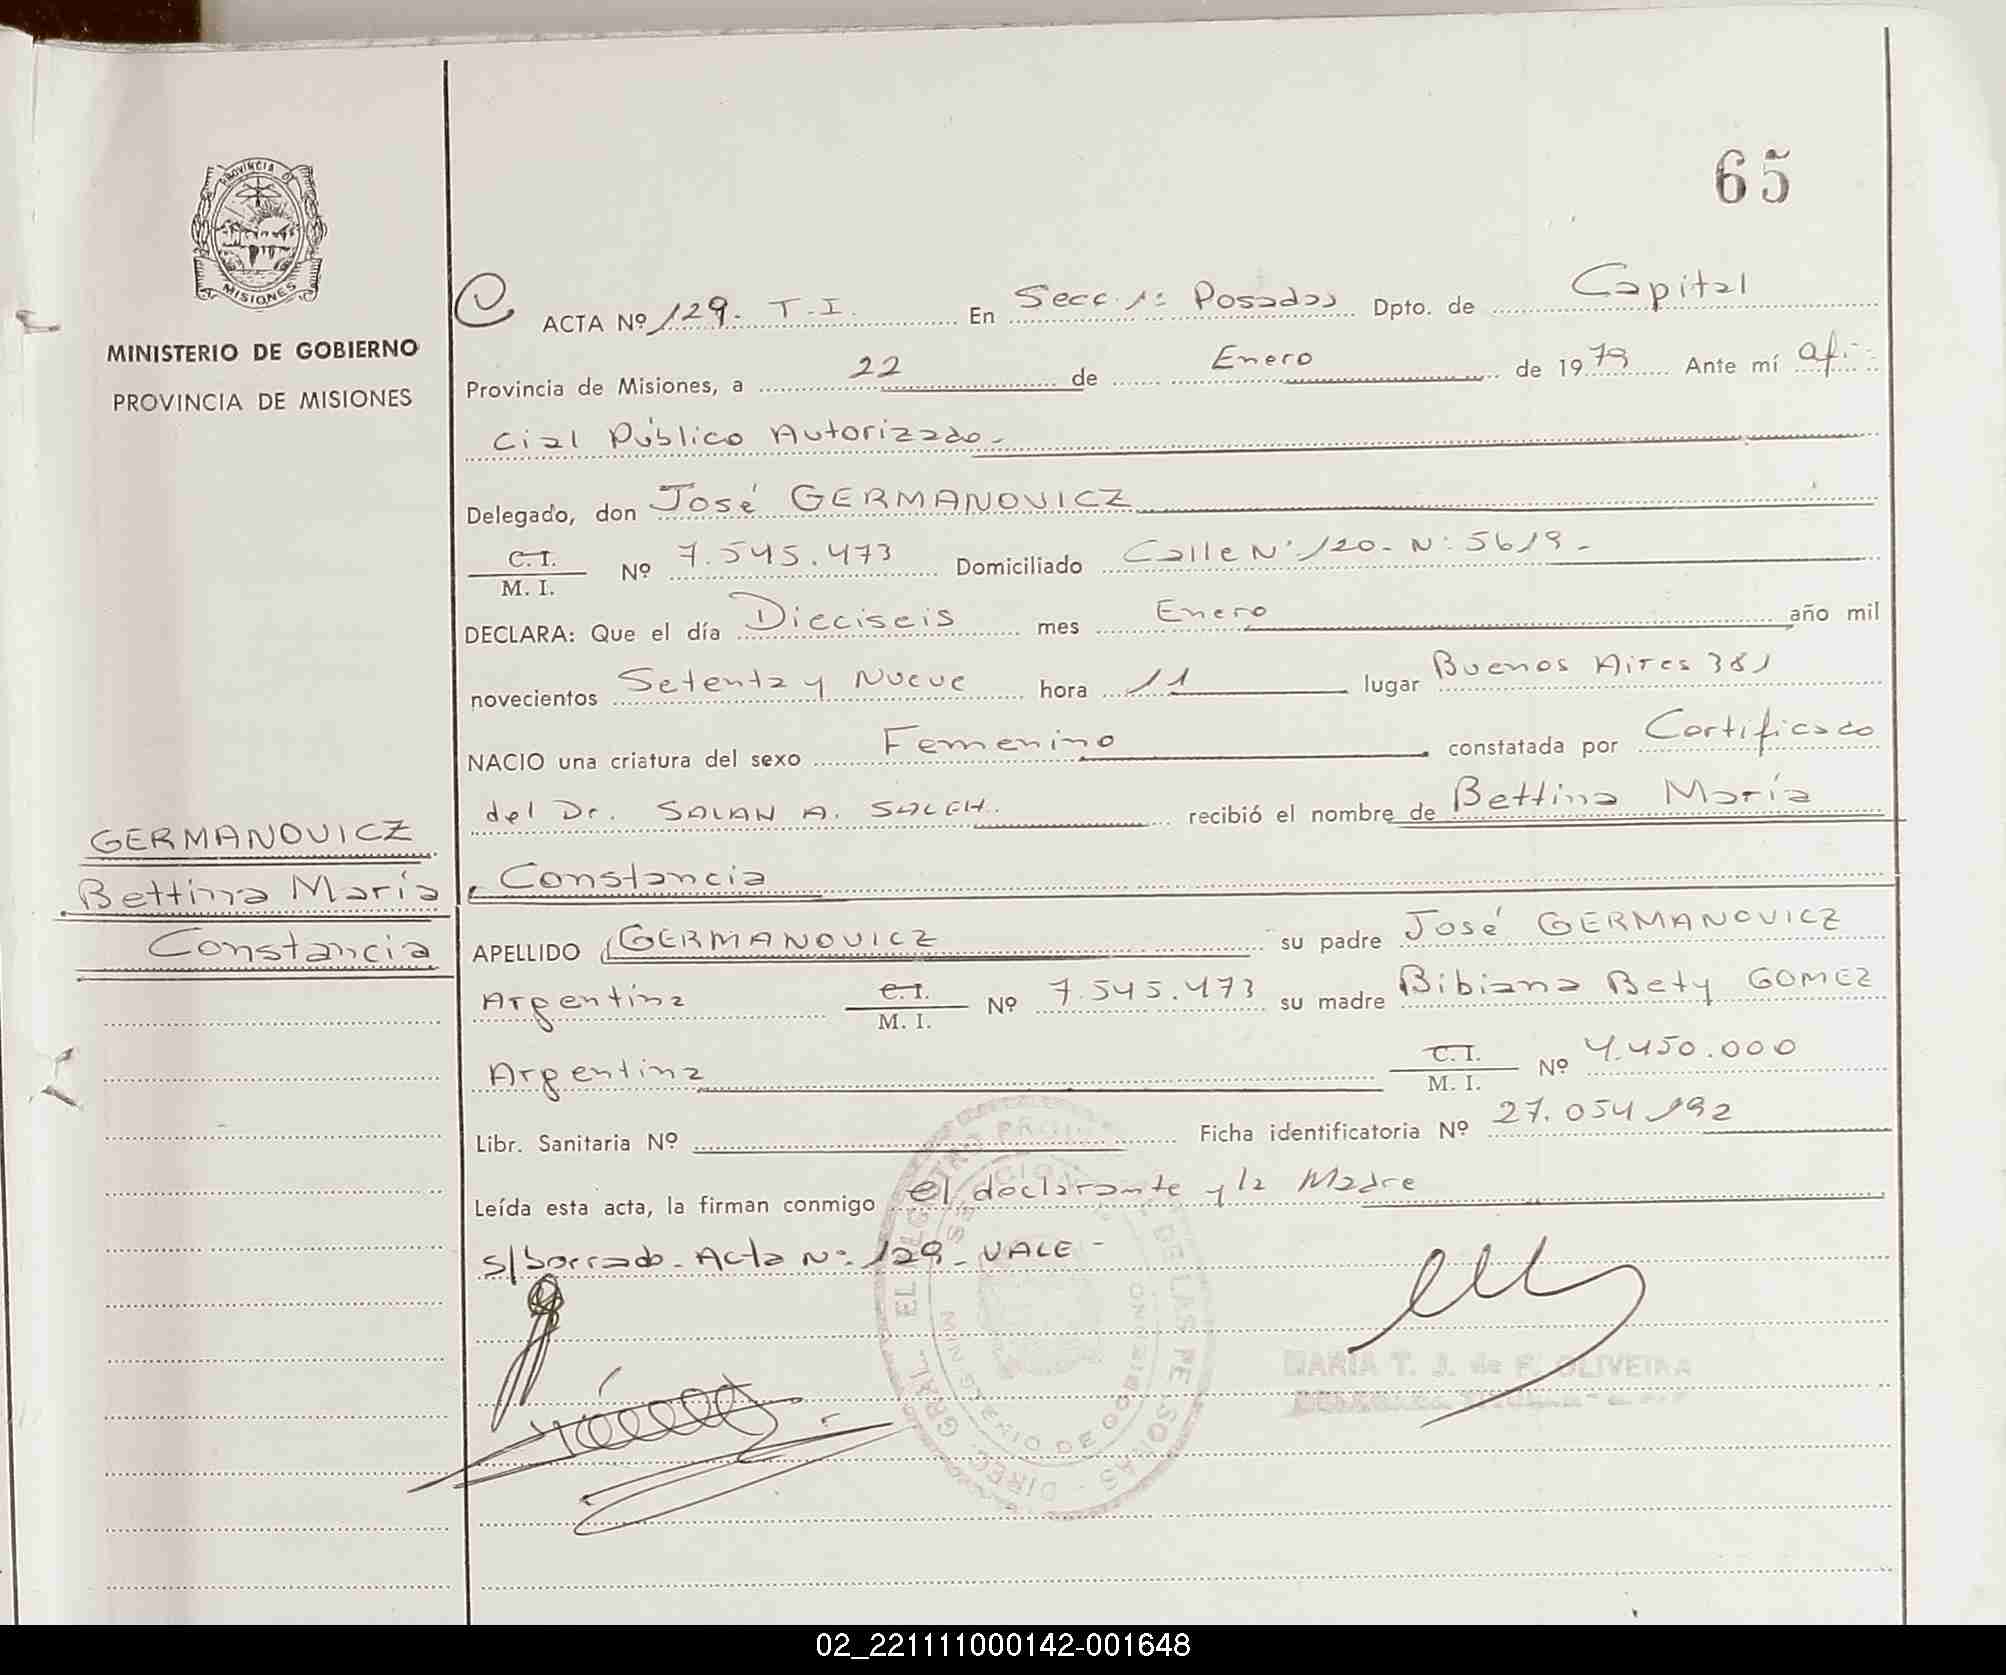 65
PROVINCIA DE
MISIONES
MINISTERIO DE GOBIERNO
PROVINCIA DE MISIONES
ACTA Nº 129. T.I. En Secc. 1: Posadas Dpto. de Capital
Provincia de Misiones, a 22 de Enero de 1979 Ante mí Ofi-
cial Público Autorizado-
Delegado, don José GERMANOVICZ
C.I.
M. I. Nº 7.545.473 Domiciliado Calle N° 120- N: 5619-
DECLARA: Que el día Dieciseis mes Enero año mil
novecientos Setenta y Nueve hora 11 lugar Buenos Aires 381
NACIO una criatura del sexo Femenino constatada por Certificado
del Dr. SALAN A. SALEH. recibió el nombre de Bettina María
Constancia
GERMANOVICZ
Bettina María
Constancia
APELLIDO GERMANOVICZ su padre José GERMANOVICZ
Argentina C.I.
M. I. Nº 7.545.473 su madre Bibiana Bety GOMEZ
Argentina C.I.
M. I. Nº 4.450.000
Libr. Sanitaria Nº Ficha identificatoria Nº 27.054.192
Leída esta acta, la firman conmigo el declarante y la Madre
s/borrado- Acta N: 129- VALE-
MARIA T. J. de F. OLIVEIRA
02_221111000142-001648